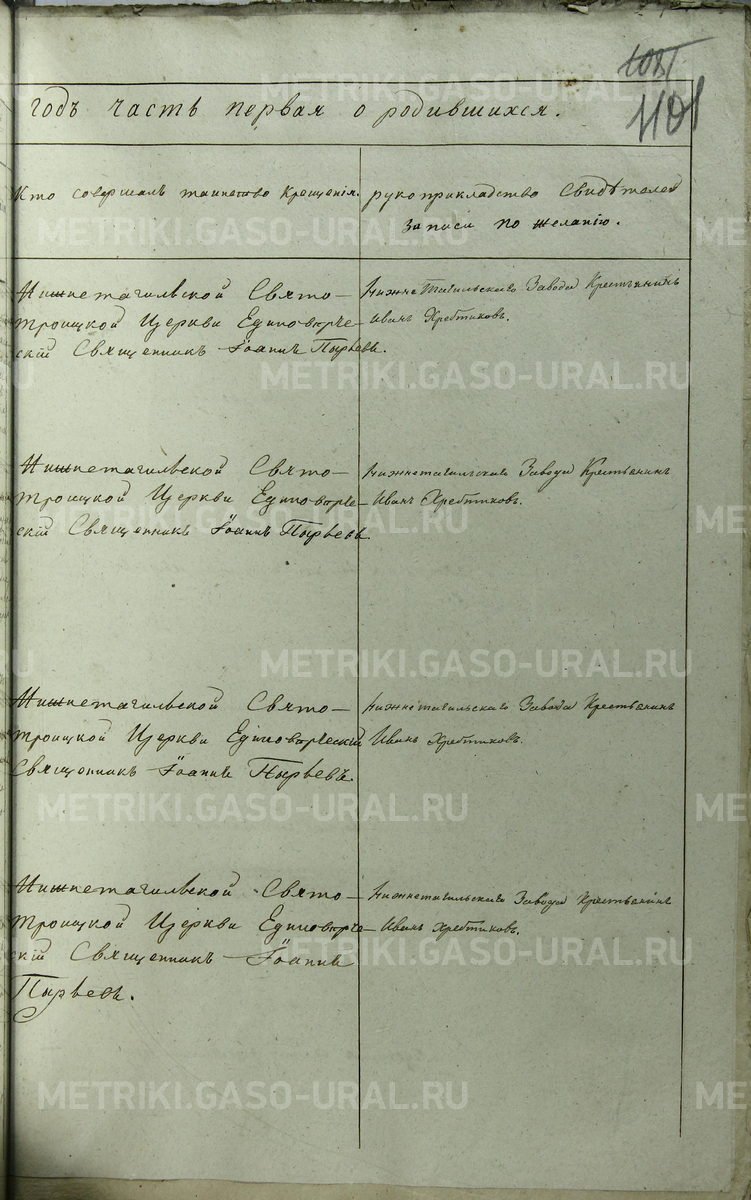 1101
годъ часть первая о родившихся.
Кто совершалъ таинство Крещенія.
рукоприкладство Свидѣтелей
записи по желанію.
Нижнетагильской Свято-
Троицкой Церкви Единовѣрче-
скій Священникъ Іоаннъ Пырьевъ.
Нижнетагильскаго Завода Крестьянинъ
Иванъ Хребтиковъ.
Нижнетагильской Свято-
Троицкой Церкви Единовѣрче-
скій Священникъ Іоаннъ Пырьевъ.
Нижнетагильскаго Завода Крестьянинъ
Иванъ Хребтиковъ.
Нижнетагильской Свято-
Троицкой Церкви Единовѣрческій
Священникъ Іоаннъ Пырьевъ.
Нижнетагильскаго Завода Крестьянинъ
Иванъ Хребтиковъ.
Нижнетагильской Свято-
Троицкой Церкви Единовѣрче-
скій Священникъ Іоаннъ
Пырьевъ.
Нижнетагильскаго Завода Крестьянинъ
Иванъ Хребтиковъ.
METRIKI.GASO-URAL.RU